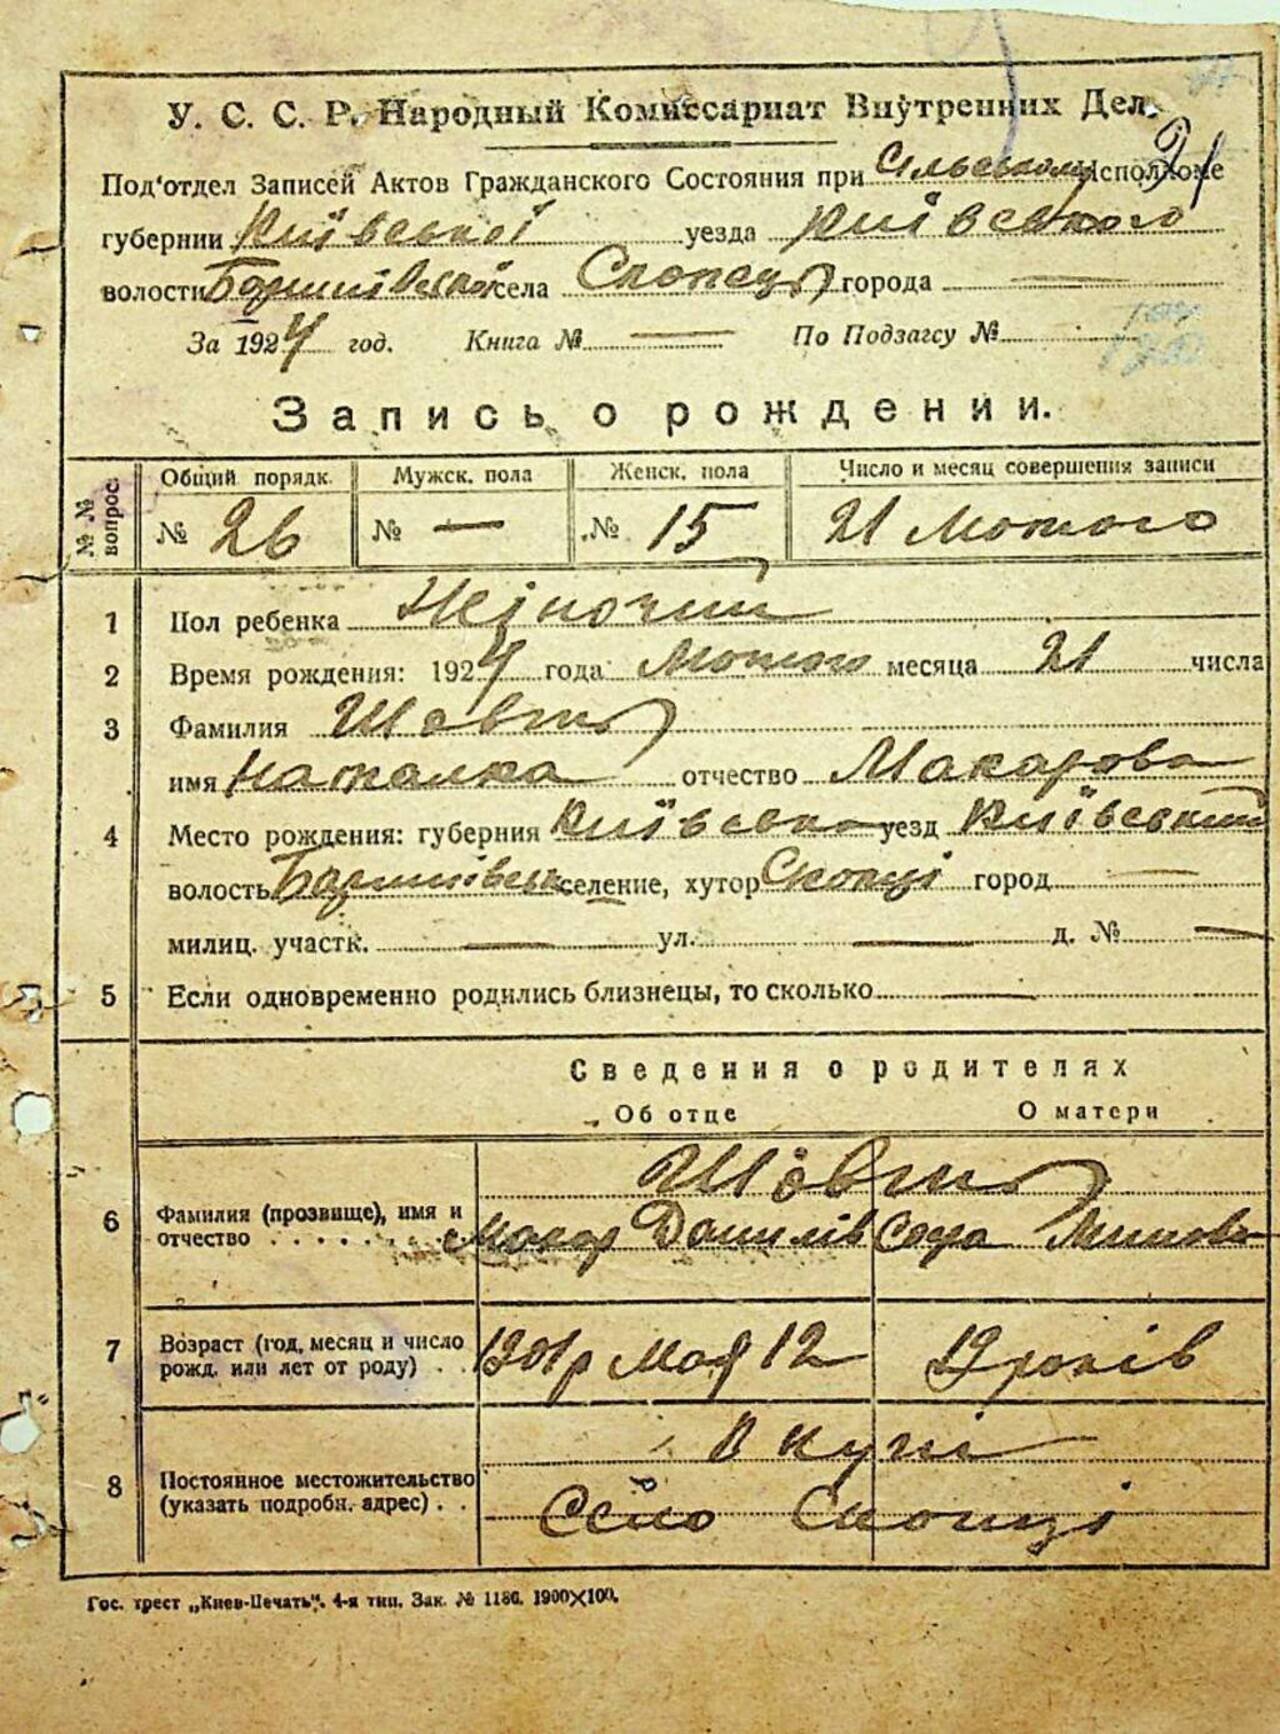 У. С. С. Р. Народный Комиссариат Внутренних Дел.
21
Под'отдел Записей Актов Гражданского Состояния при Сільському исполкоме
губернии Київської уезда Київського
волости Баришівської села Скопець города —
За 1924 год. Книга № — По Подзагсу №
Запись о рождении.
№ № вопрос. Общий порядк. Мужск. пола Женск. пола Число и месяц совершения записи
№ 26 № — № 15 21 Лютого
1 Пол ребенка Жіночий
2 Время рождения: 1924 года Лютого месяца 21 числа
3 Фамилия Шевель
имя Наталка отчество Макарова
4 Место рождения: губерния Київська уезд Київський
волость Баришівськ селение, хутор Скопці город —
милиц. участк. — ул. — д. № —
5 Если одновременно родились близнецы, то сколько —
Сведения о родителях
Об отце О матери
6 Фамилия (прозвище), имя и отчество
Макар Данилів
7 Возраст (год, месяц и число рожд. или лет от роду) 1901р мая 12 19 років
8 Постоянное местожительство (указать подробн. адрес)
В купі
Село Скопці
Гос. трест „Киев-Печать“. 4-я тип. Зак. № 1186. 1900×100.